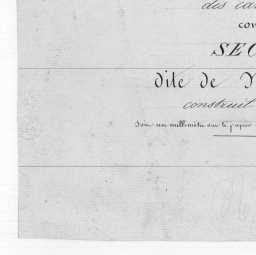 des ca
con
SEC
dite de N
construit
Soit un millimètre sur le papier